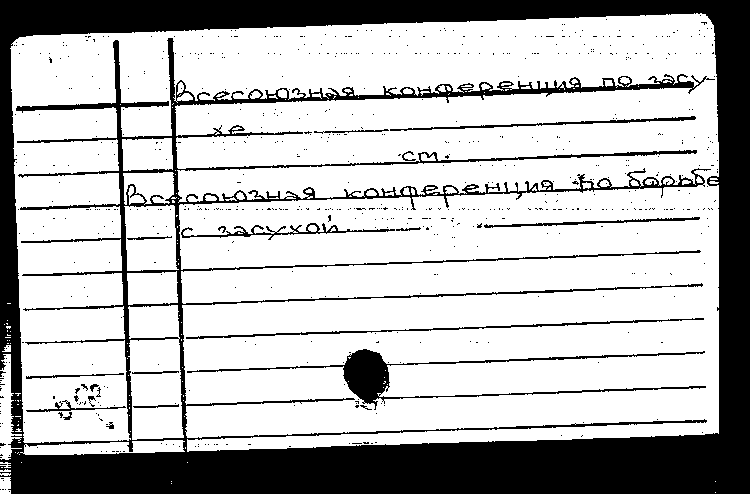 Всесоюзная конференция по засу-
хе
см.
Всесоюзная конференция по борьбе
с засухой